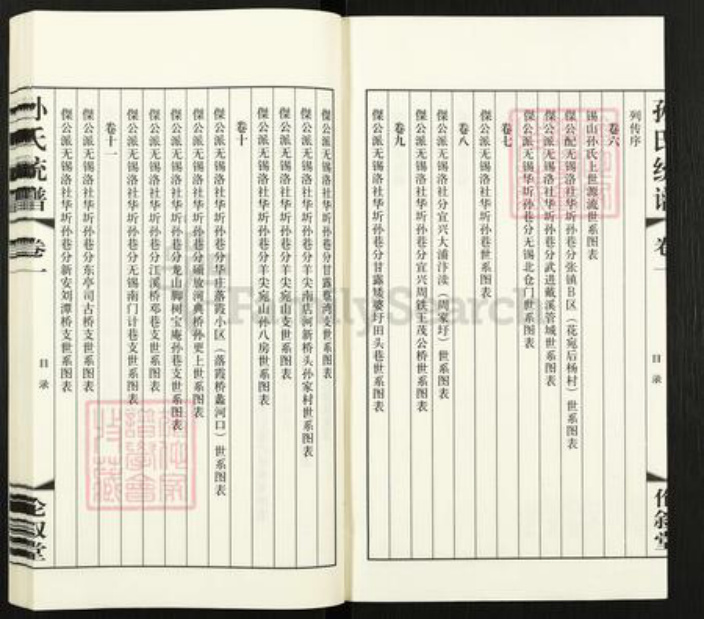 孙氏统谱
卷一
目录
伦叙堂
列传序
卷六
锡山孙氏上世源流世系图表
傑公配无锡洛社华圻孙巷分张镇B区（花宛后杨村）世系图表
傑公派无锡洛社华圻孙巷分武进戴溪管城世系图表
傑公派无锡洛社华圻孙巷分无锡北仓门世系图表
卷七
傑公派无锡洛社华圻孙巷世系图表
卷八
傑公派无锡洛社分宜兴大浦汴渎（周家圩）世系图表
傑公派无锡洛社华圻孙巷分宜兴周铁王茂公桥世系图表
卷九
傑公派无锡洛社华圻孙巷分甘露矮婆圩田头巷世系图表
傑公派无锡洛社华圻孙巷分甘露蔡湾支世系图表
傑公派无锡洛社华圻孙巷分羊尖南店河新桥头孙家村世系图表
傑公派无锡洛社华圻孙巷分羊尖宛山支世系图表
傑公派无锡洛社华圻孙巷分羊尖宛山孙八房世系图表
卷十
傑公派无锡洛社华圻孙巷分华庄落霞小区（落霞桥蠡河口）世系图表
傑公派无锡洛社华圻孙巷分硕放河典桥孙更上世系图表
傑公派无锡洛社华圻孙巷分龙山脚树宝庵孙巷支世系图表
傑公派无锡洛社华圻孙巷分江溪桥邓巷支世系图表
傑公派无锡洛社华圻孙巷分无锡南门计巷支世系图表
卷十一
傑公派无锡洛社华圻孙巷分东亭司古桥支世系图表
傑公派无锡洛社华圻孙巷分新安刘潭桥支世系图表
孙氏统谱
卷一
目录
伦叙堂
FamilySearch